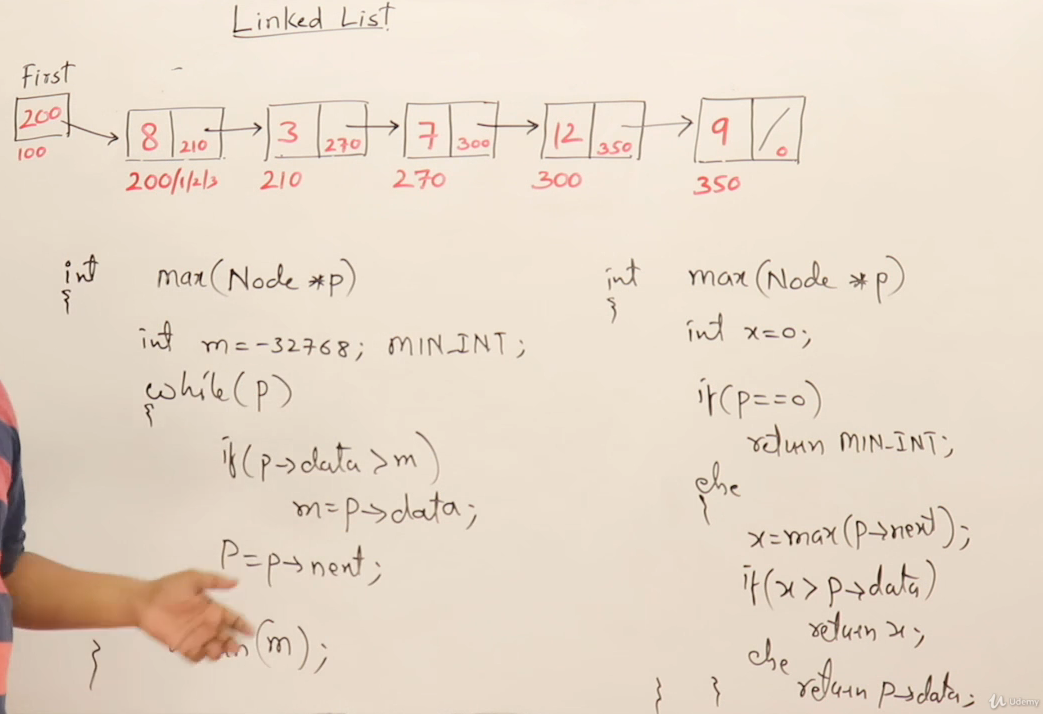 Linked List
First
200
100
8 210
200/1/2/3
3 270
210
7 300
270
12 350
300
9 0
350
int max(Node *p)
{
int m=-32768; MIN_INT;
while(p)
{
if(p→data>m)
m=p→data;
P=p→next;
(m);
}
int max(Node *p)
{
int x=0;
if(p==0)
return MIN_INT;
else
{
x=max(p→next);
if(x>p→data)
return x;
else
return p→data;
} }
Udemy